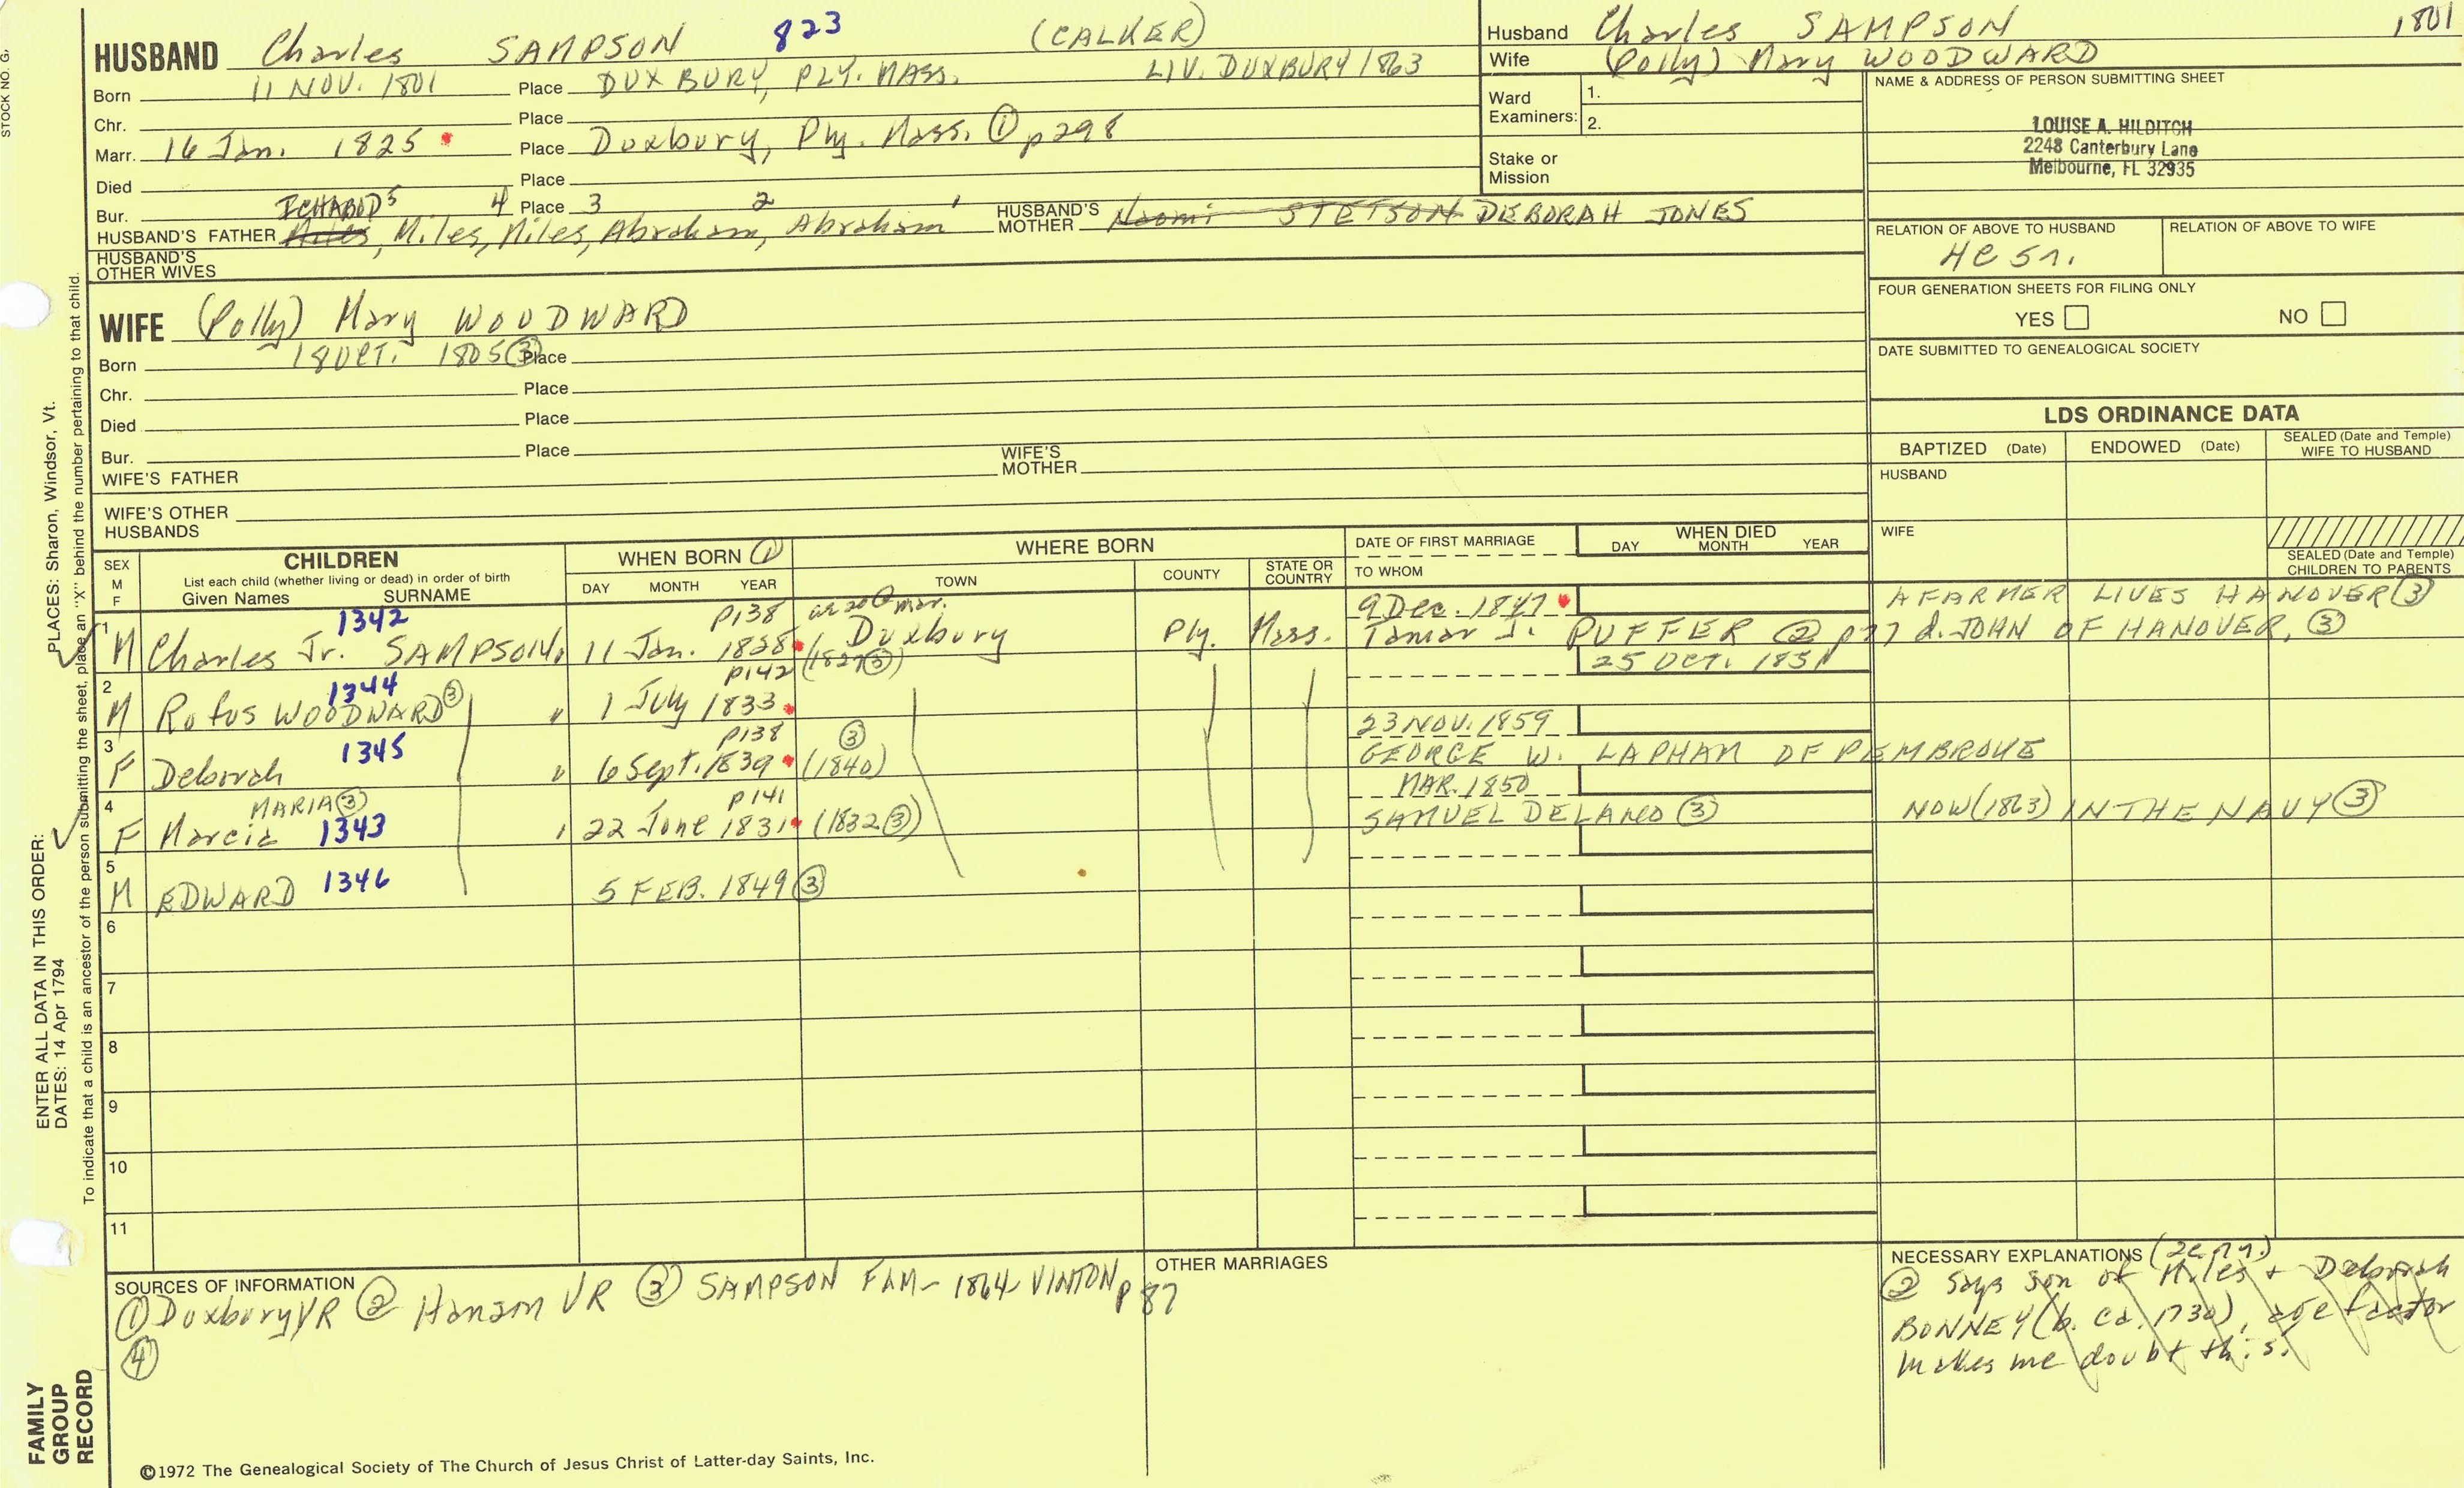 STOCK NO. G.
HUSBAND Charles SAMPSON 823 (CALKER)
Born 11 NOV. 1801 Place DUXBURY, PLY. MASS. LIV. DUXBURY 1863
Chr. Place
Marr. 16 Jan. 1825 Place Duxbury, Ply. Mass. ① p298
Died Place
Bur. Place
ICHABOD⁵ 4 3 2 1
HUSBAND'S FATHER Miles, Miles, Miles, Abraham, Abraham HUSBAND'S MOTHER Naomi STETSON DEBORAH JONES
HUSBAND'S OTHER WIVES
WIFE (Polly) Mary WOODWARD
Born 18 OCT. 1805 ③ Place
Chr. Place
Died Place
Bur. Place
WIFE'S FATHER WIFE'S MOTHER
WIFE'S OTHER HUSBANDS
Husband Charles SAMPSON 1801
Wife (Polly) Mary WOODWARD
Ward Examiners: 1.
2.
Stake or Mission
NAME & ADDRESS OF PERSON SUBMITTING SHEET
LOUISE A. HILDITCH
2248 Canterbury Lane
Melbourne, FL 32935
RELATION OF ABOVE TO HUSBAND RELATION OF ABOVE TO WIFE
FOUR GENERATION SHEETS FOR FILING ONLY
YES NO
DATE SUBMITTED TO GENEALOGICAL SOCIETY
LDS ORDINANCE DATA
BAPTIZED (Date) ENDOWED (Date) SEALED (Date and Temple) WIFE TO HUSBAND
HUSBAND
WIFE
SEALED (Date and Temple) CHILDREN TO PARENTS
SEX M F
CHILDREN
List each child (whether living or dead) in order of birth
Given Names SURNAME
WHEN BORN ①
DAY MONTH YEAR
WHERE BORN
TOWN COUNTY STATE OR COUNTRY
DATE OF FIRST MARRIAGE
TO WHOM
WHEN DIED
DAY MONTH YEAR
1342 P138 9 Dec. 1847 A FARMER LIVES HANOVER ③
1 M Charles Jr. SAMPSON 11 Jan. 1828 (1827③) Duxbury Ply. Mass. Tamar J. PUFFER ② p77 d. JOHN OF HANOVER, ③
1344 P142 25 OCT. 1851
2 M Rufus WOODWARD ③ " 1 July 1833
1345 P138 ③ 23 NOV. 1859
3 F Deborah " 6 Sept. 1839 (1840) GEORGE W. LAPHAM OF PEMBROKE
MARIA ③ P141 MAR. 1850
4 F Marcia 1343 " 22 June 1831 (1832③) SAMUEL DELANO ③ NOW (1863) IN THE NAVY ③
5 M EDWARD 1346 5 FEB. 1849 ③
6
7
8
9
10
11
SOURCES OF INFORMATION
① Duxbury VR ② Hanson VR ③ SAMPSON FAM - 1864 - VINTON p 87
④
OTHER MARRIAGES
NECESSARY EXPLANATIONS
② Says son of Miles + Deborah
BONNEY (b. ca. 1730), age factor
makes me doubt this.
©1972 The Genealogical Society of The Church of Jesus Christ of Latter-day Saints, Inc.
ENTER ALL DATA IN THIS ORDER:
DATES: 14 Apr 1794
PLACES: Sharon, Windsor, Vt.
To indicate that a child is an ancestor of the person submitting the sheet, place an "X" behind the number pertaining to that child.
FAMILY GROUP RECORD